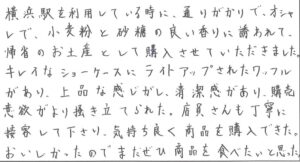 横浜駅を利用している時に、通りがかりで、オシャ
レで、小麦粉と砂糖の良い香りに誘われて、
帰省のお土産として購入させていただきました。
キレイなショーケースにライトアップされたワッフル
があり、上品な感じがし、清潔感があり、購売
意欲がより掻き立てられた。店員さんも丁寧に
接客して下さり、気持ち良く商品を購入できた。
おいしかったのでまたぜひ商品を食べたいと思った